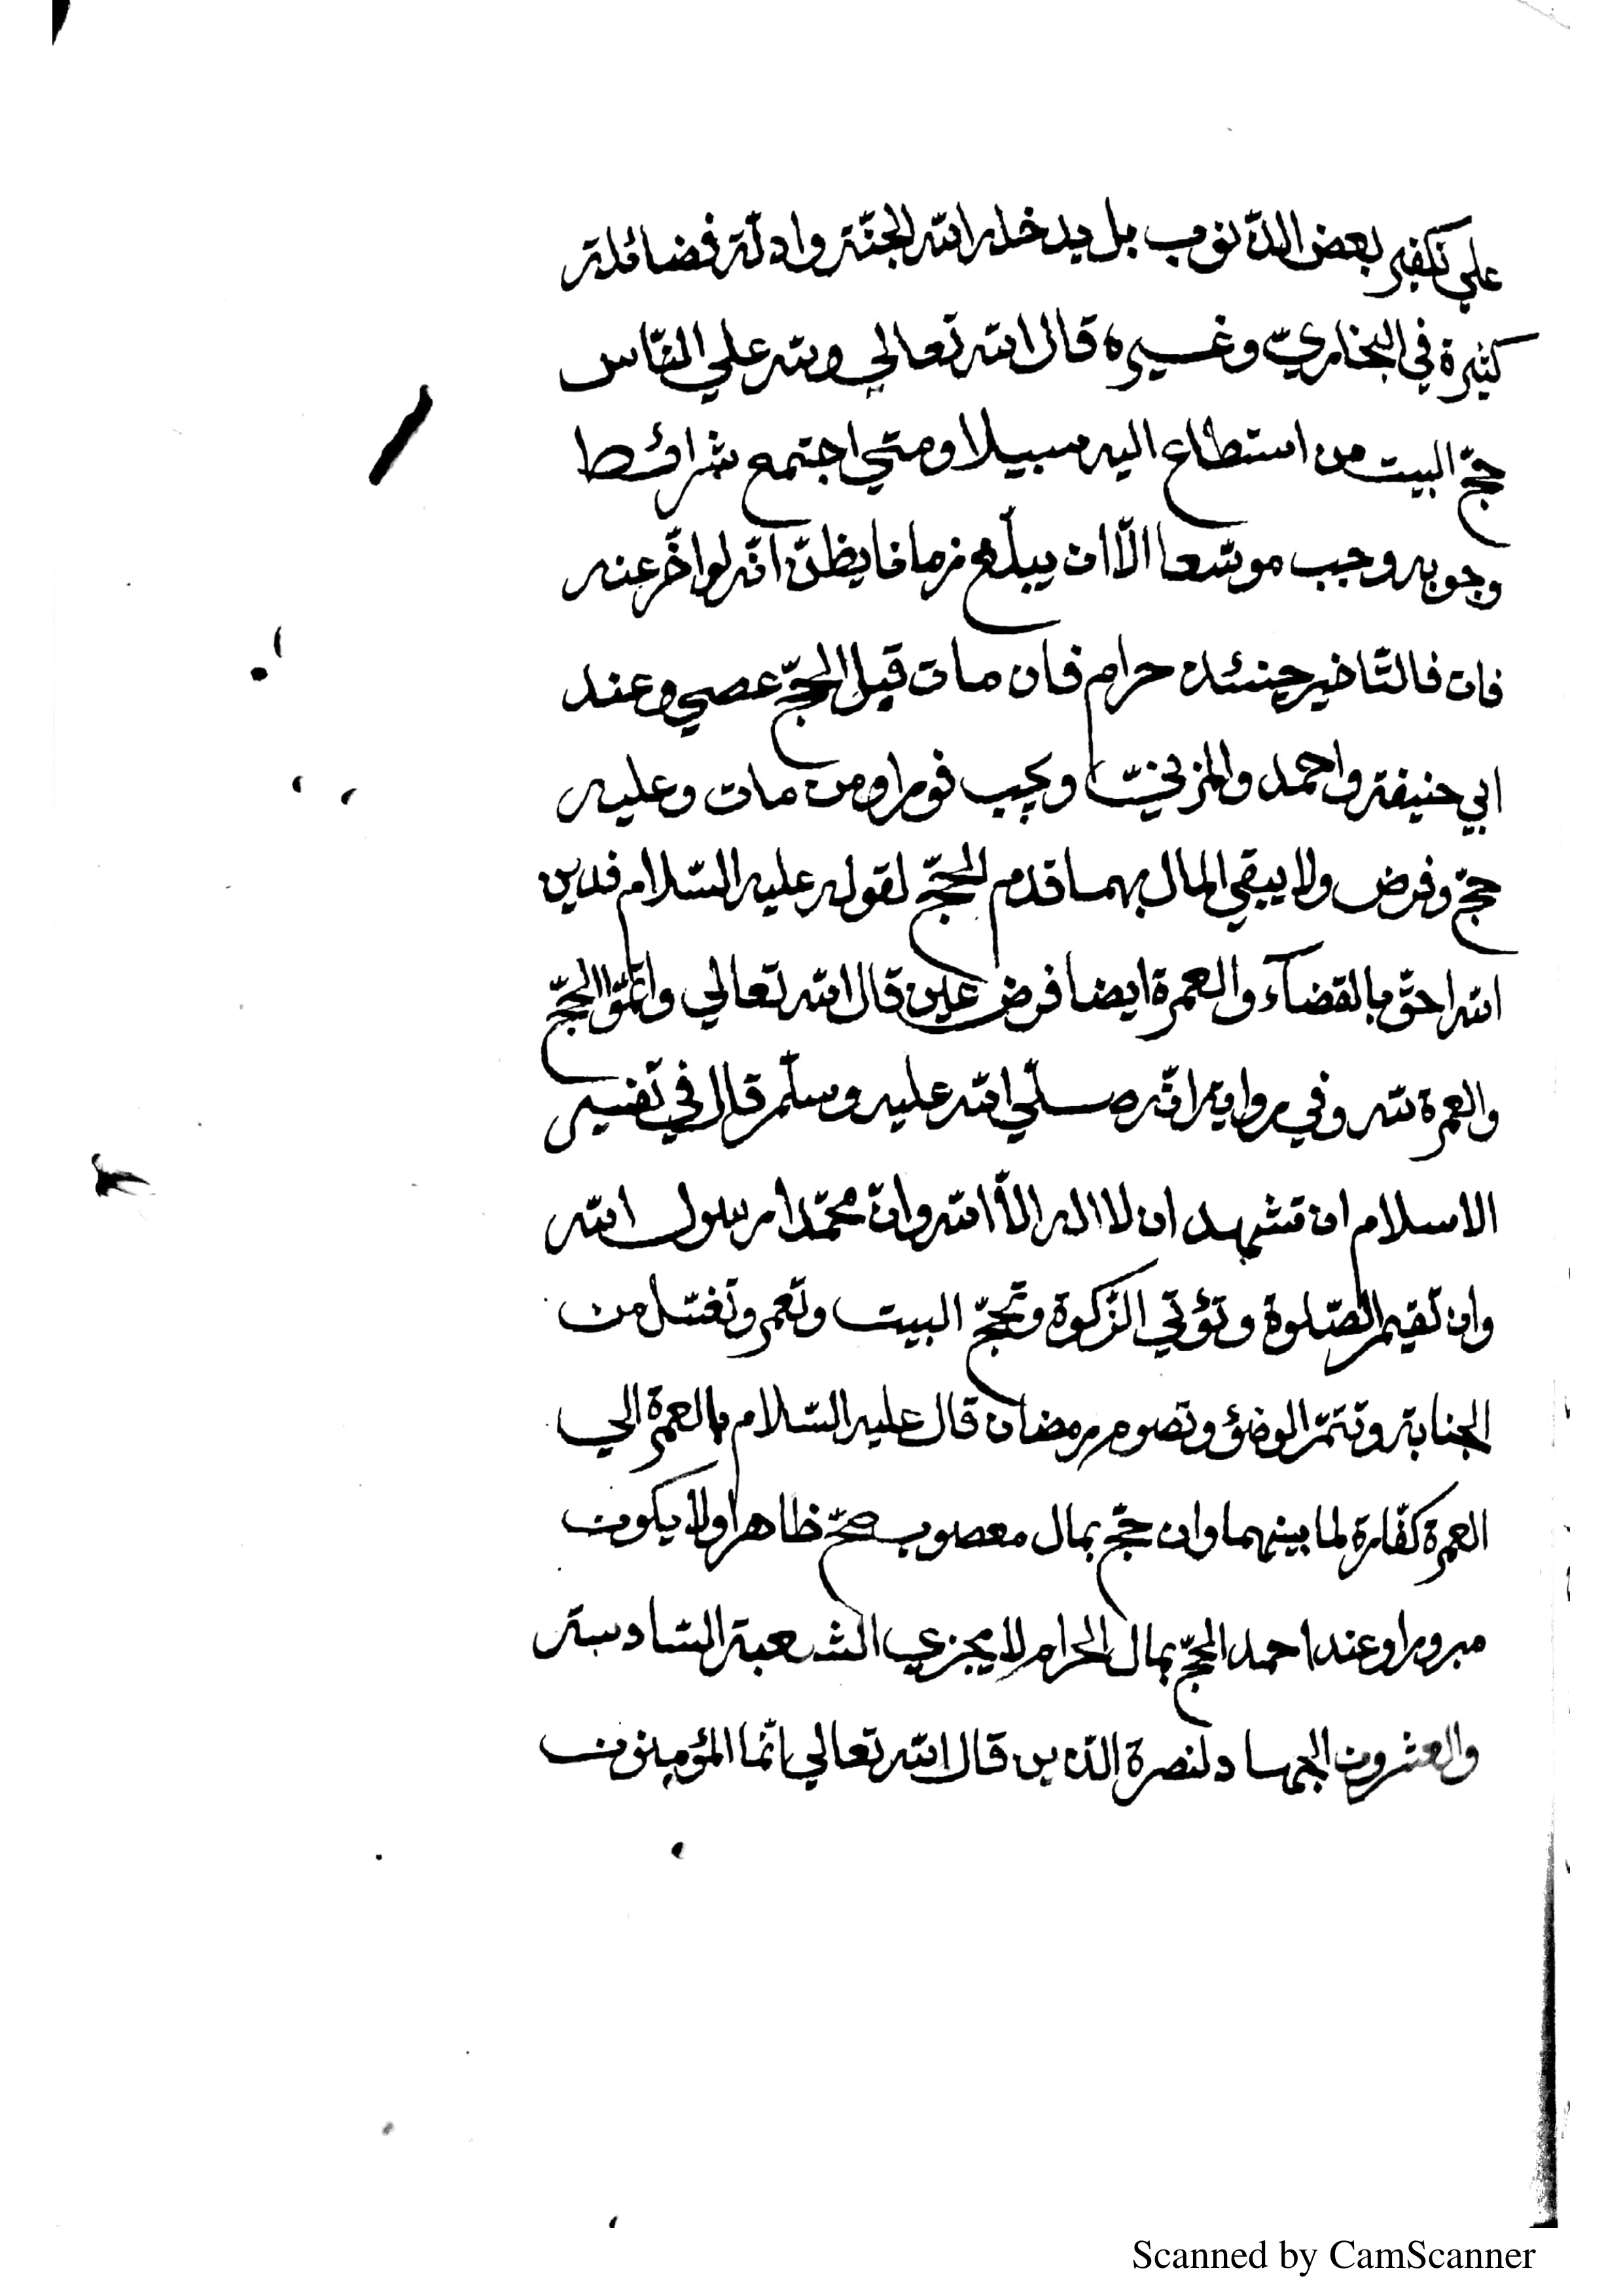 علي تكفير بعض الذّنوب بل يدخله الله الجنّة وادلّة فضائلة
كثيرة في البخاريّ وغسيره قال الله تعالي ولله علي النّاس
حجّ البيت من استطاع اليه سبيلا ومتي اجتمع شرائط
وجوبه وجب موسّعا الّا ان يبلّغ زمانا يظنّ انّه لو اخّر عنه
فان فالتّاخير حينئذ حرام فان مات قبل الحجّ عصي وعند
ابي حنيفة واحمد والمزنيّ ويجب فورا ومن مات وعليه
حجّ وفرض ولا يبقي المال بهما قدم الحجّ لقوله عليه السّلام فدين
الله احقّ بالقضآء والعمرة ايضا فرض عين قال الله تعالي واتمّوا الحجّ
والعمرة لله وفي رواية انّه صلّي الله عليه وسلّم قال في تفسير
الاسلام ان تشهد ان لا اله الّا الله وانّ محمّدا رسول الله
وان تقيم الصّلوة وتؤتي الزّكوة وتحجّ البيت وتعمر وتغتسل من
الجنابة وتتمّ الوضؤ وتصوم رمضان قال عليه السّلام بالعمرة الي
العمرة كفّارة لما بينهما وان حجّ بمال معصوب صحّ ظاهرا ولا يكون
مبرورا وعند احمد الحجّ بمال الحرام لا يجزي الشعبة السّادسة
والعشرون الجهاد لنصرة الدّين قال الله تعالي انّما المؤمنون
Scanned by CamScanner